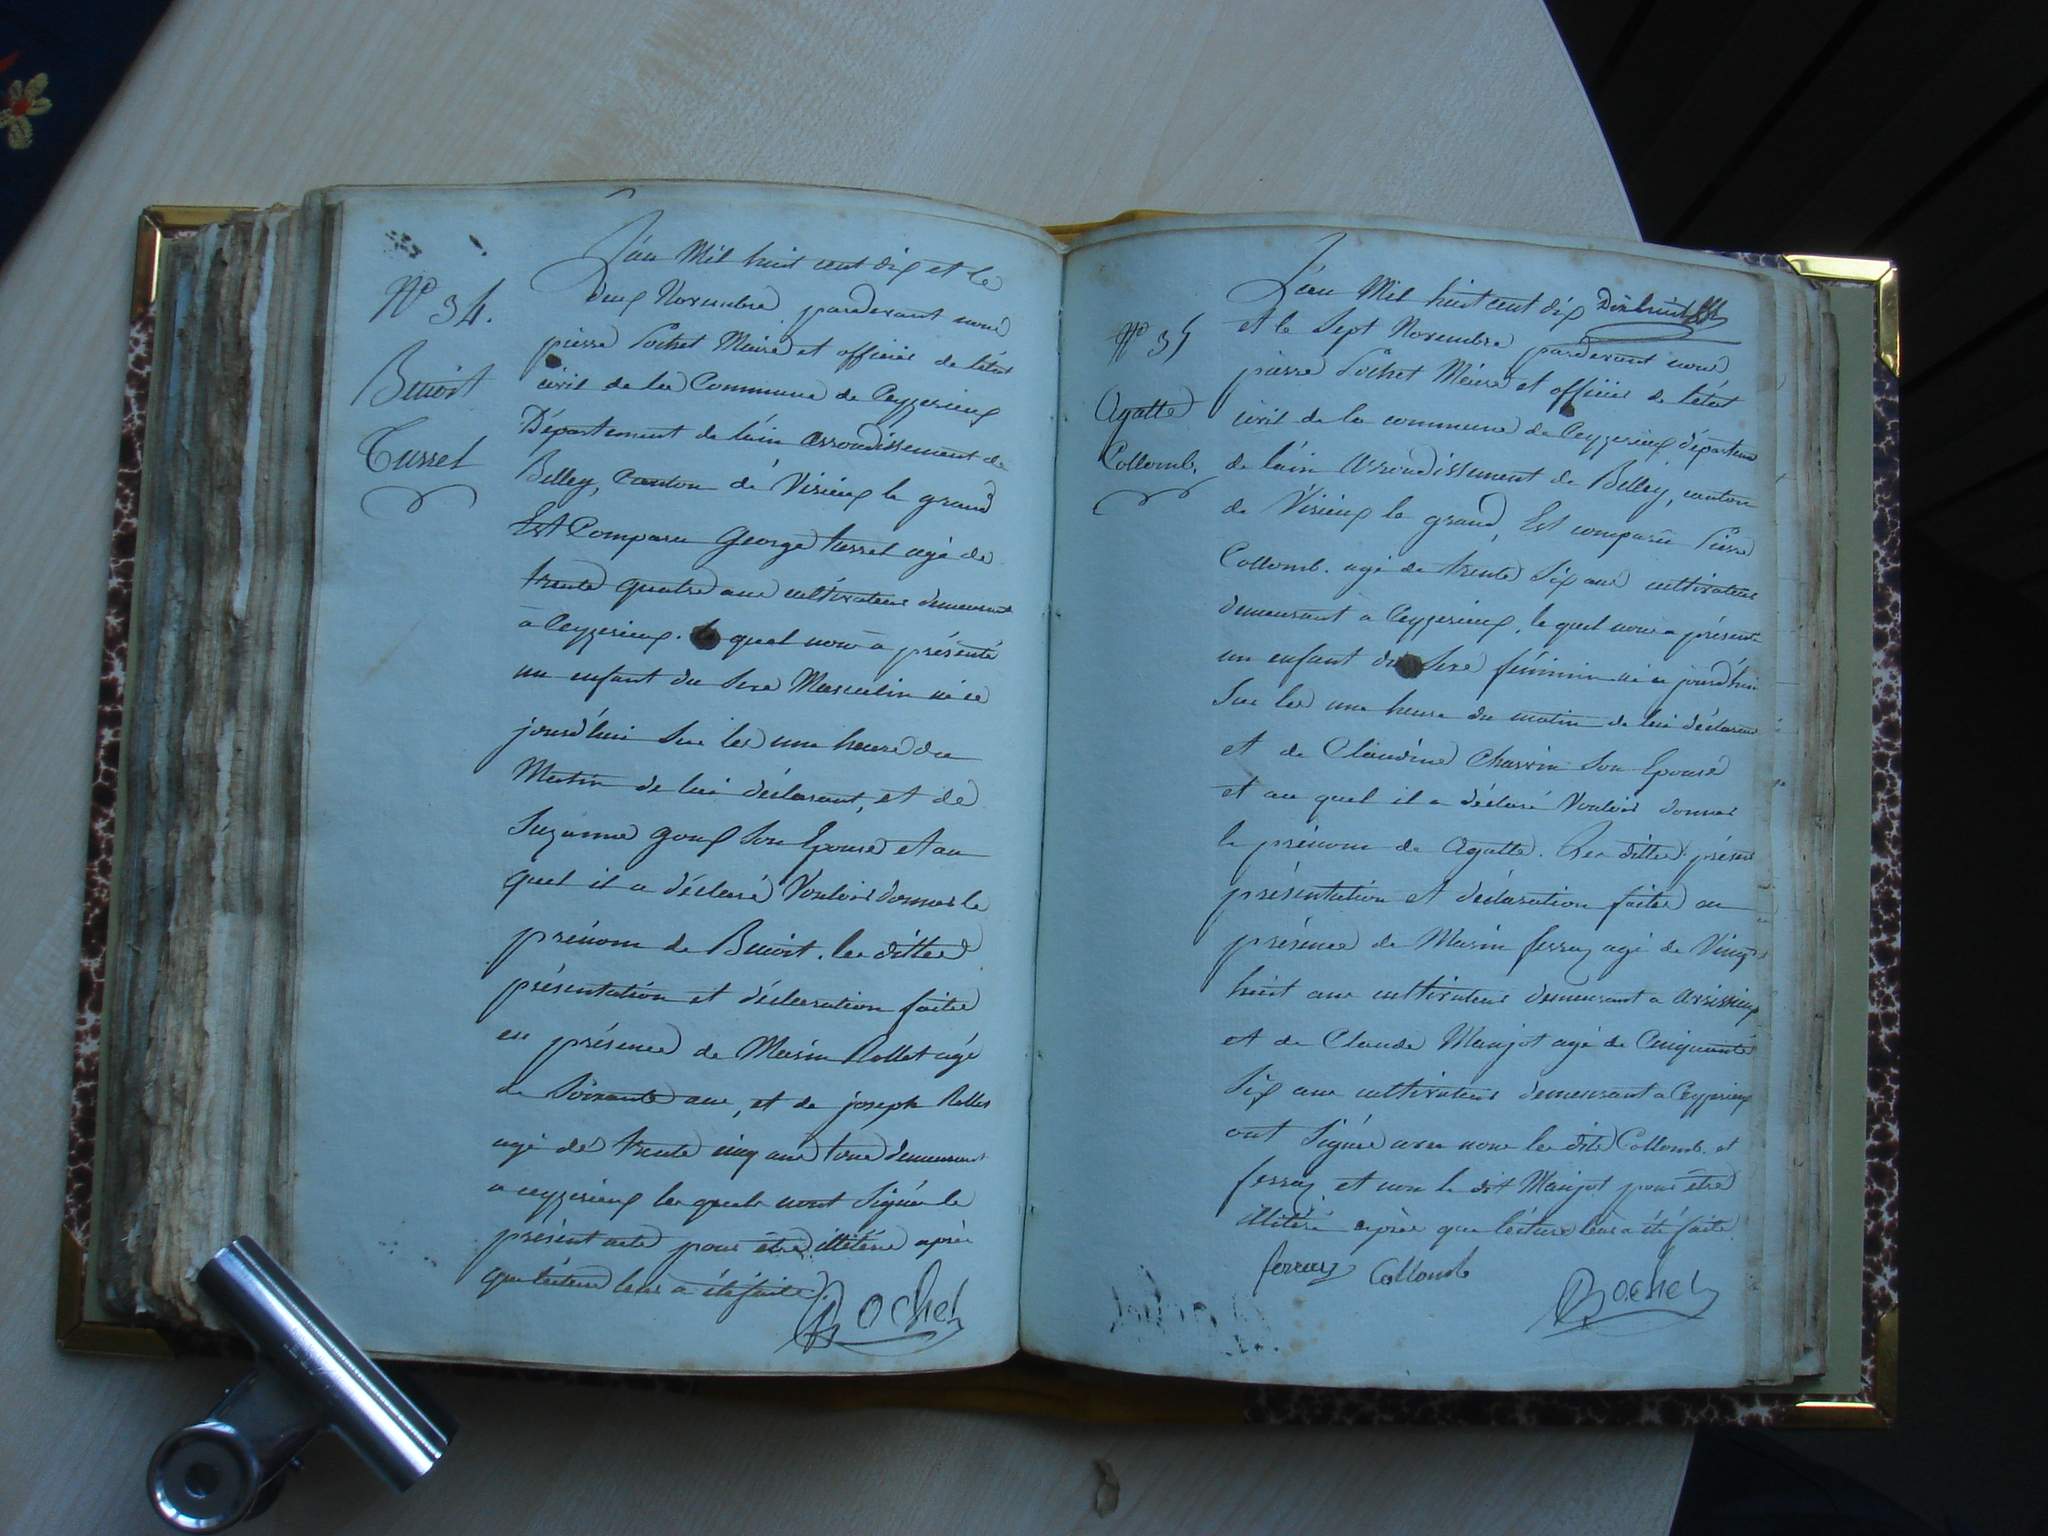 N° 34.
Benoit
Tussel
L'an Mil huit cent dix et le
deux Novembre pardevant nous
pierre Pochet Maire et officier de l'état
civil de la Commune de Ceyzerieux
Département de l'ain arrondissement de
Belley, Canton de Virieux le grand
Est Comparu George tussel agé de
trente quatre ans cultivateur demeurant
a Ceyzerieux. le quel nous a présenté
un enfant du Sexe Masculin né ce
jourd'hui Sur les une heure du
Matin de lui déclarant, et de
Suzanne goux Son Epouse et au
quel il a déclaré Vouloir donner le
prénom de Benoit. les dittes
présentation et déclaration faites
en présence de Marin Rollet agé
de Soixante ans, et de joseph Rollet
agé de trente cinq ans tous demeurant
a ceyzerieux les quels n'ont Signés le
présent acte pour être illitéré après
que lecture leur a été faite.
Pochet
N° 35
Agatte
Collomb.
L'an Mil huit cent dix Dixhuit
et le Sept Novembre pardevant nous
pierre Pochet Maire et officier de l'état
civil de la commune de Ceyzerieux départem
de l'ain arrondissement de Belley, canton
de Virieux le grand, Est comparu Pierre
Collomb. agé de trente Six ans cultivateur
demeurant a Ceyzerieux, le quel nous a présenté
un enfant du Sexe féminin né ce jourd'hui
Sur les une heure du matin de lui déclarant
et de Claudine Charvin Son Epouse
et au quel il a déclaré Vouloir donner
le prénom de Agatte. Les dittes présen
présentation et déclaration faites en
présence de Marin ferray agé de Vingt
huit ans cultivateur demeurant a
et de Claude Manjot agé de Cinquante
Six ans cultivateur demeurant a Ceyzerieux
ont Signés avec nous les dits Collomb. et
ferray et non le dit Manjot pour être
illitéré après que lecture leur a été faite.
ferray Collomb
Pochet